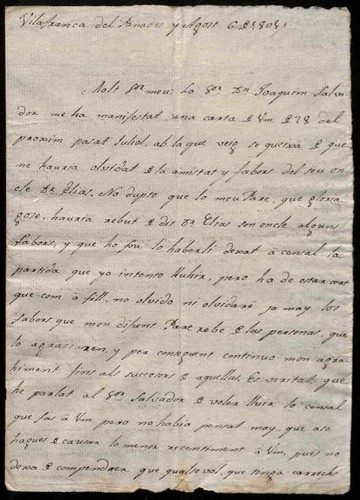 Vilafranca del Panades y Agost 6 de 1801.
Molt Sor meu: Lo Sor Dn Joaquim Salva-
dor me ha manifestat una carta de Vm de 28 del
proxim pasat Juliol, ab la que veig se queixa de que
me hauria olvidat de la amitat y fabors del seu on-
cle Dn Elias. No dupto que lo meu Pare, que gloria
gose, hauria rebut de dit Dn Elias son oncle alguns
fabors, y que ho fou lo haberli dexat à censal la
partida que yo intento lluhir, pero ha de estar cert
que com à fill, no olvido ni olvidaré ja may los
fabors que mon difunt Pare rebé de las personas, que
lo apreciaren, y per conseguent continuo mon agra-
himent fins als succesors de aquellas. Es veritat, que
he parlat al Sor Salvador de voler lluir lo censal
que fas à Vm, pero no habia pensat may, que aso
hagues de causar lo menor recentiment à Vm, pues no
dexa de compendrer que qualsevol que tinga carrechs